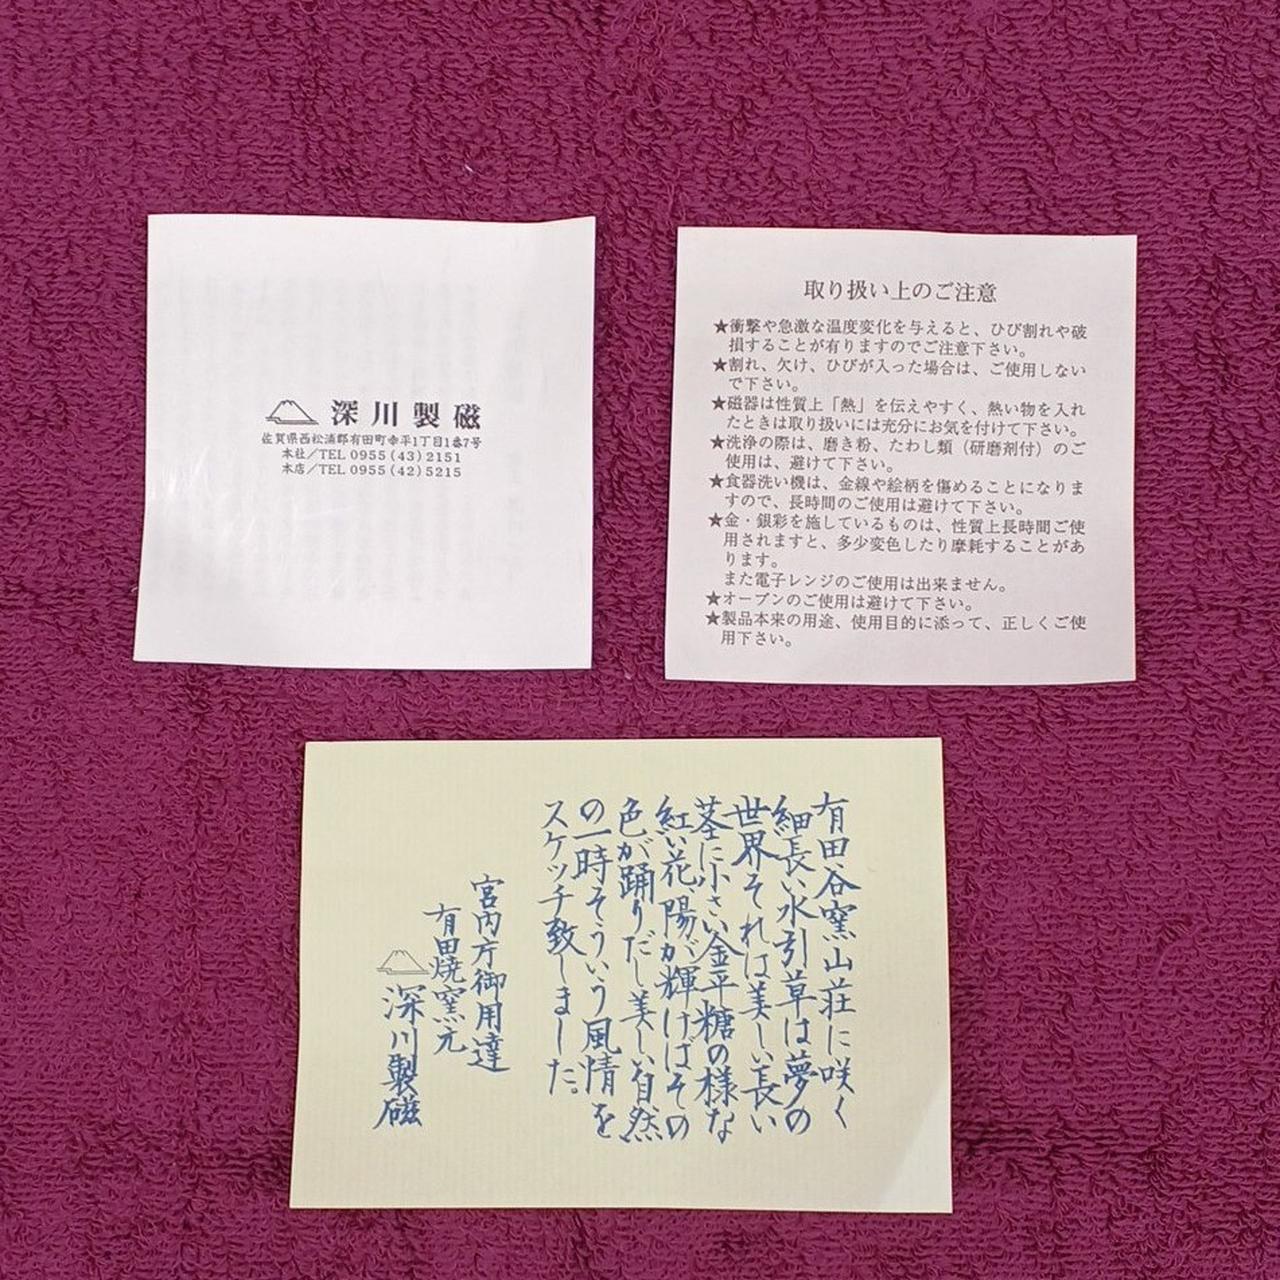 深川製磁
佐賀県西松浦郡有田町幸平1丁目1番7号
本社／TEL 0955 (43) 2151
本店／TEL 0955 (42) 5215
取り扱い上のご注意
★衝撃や急激な温度変化を与えると、ひび割れや破
損することが有りますのでご注意下さい。
★割れ、欠け、ひびが入った場合は、ご使用しない
で下さい。
★磁器は性質上「熱」を伝えやすく、熱い物を入れ
たときは取り扱いには充分にお気を付けて下さい。
★洗浄の際は、磨き粉、たわし類（研磨剤付）のご
使用は、避けて下さい。
★食器洗い機は、金線や絵柄を傷めることになりま
すので、長時間のご使用は避けて下さい。
★金・銀彩を施しているものは、性質上長時間ご使
用されますと、多少変色したり摩耗することがあ
ります。
また電子レンジのご使用は出来ません。
★オーブンのご使用は避けて下さい。
★製品本来の用途、使用目的に添って、正しくご使
用下さい。
有田谷窯山荘に咲く
細長い水引草は夢の
世界それは美しい長い
茎に小さい金平糖の様な
紅い花陽が輝けばその
色が踊りだし美しい自然
の一時そういう風情を
スケッチ致しました。
宮内庁御用達
有田焼窯元
深川製磁